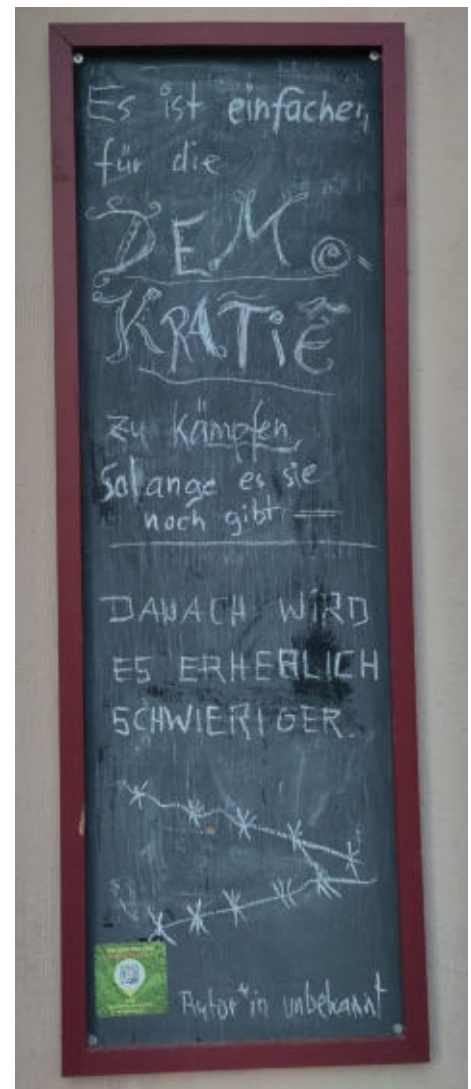 Es ist einfacher,
für die
DEMO-
KRATiE
zu kämpfen,
solange es sie
noch gibt —
DANACH WiRD
ES ERHEBLICH
SCHWIERIGER.
Autor*in unbekannt